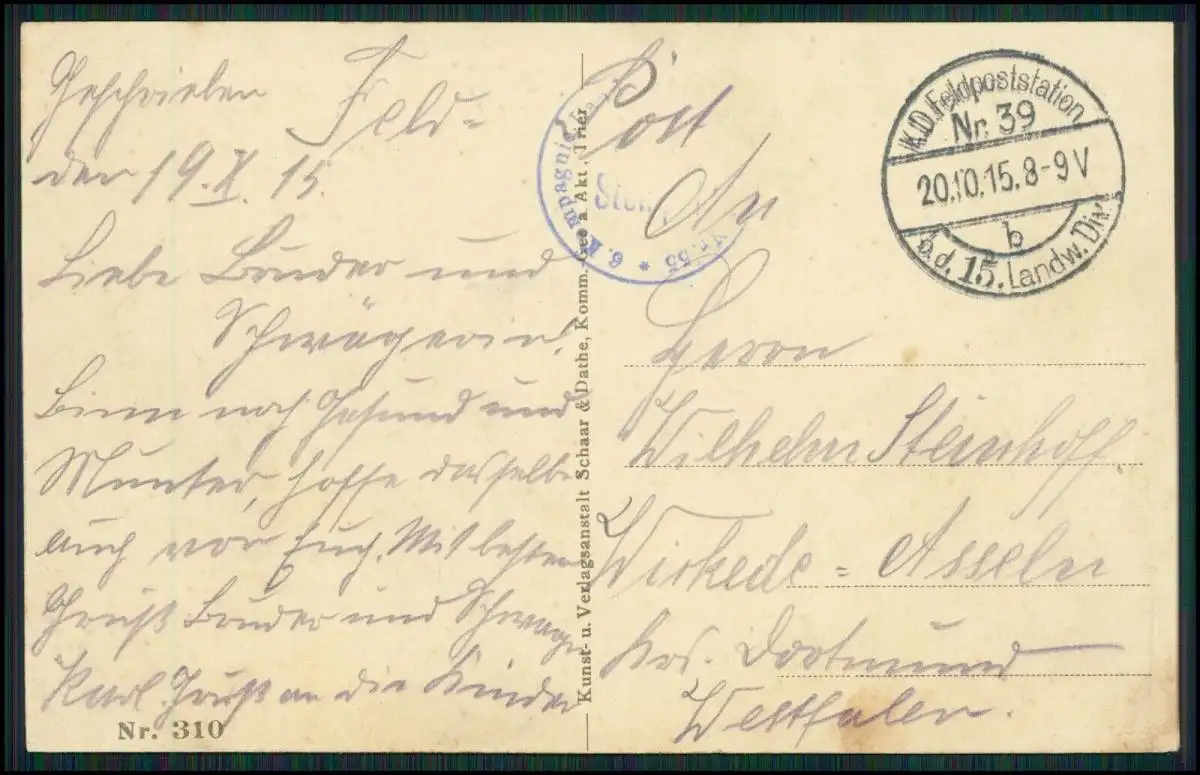 Geschrieben
den 19. X. 15.
Liebe Bruder und
Schwägerin!
Binn noch Gesund und
Munter, hoffe dasselbe
auch von Euch. Mit besten
Gruß Bruder und Schwager
Karl. Gruß an die Kinder
Nr. 310
Kunst- u. Verlagsanstalt Schaar & Dathe, Komm.-Ges. a. Akt., Trier
Feld- Post
6. Kompagnie
Nr. 55 *
K.D. Feldpoststation
Nr. 39
20.10.15. 8-9 V
b
b.d. 15. Landw. Div.
An
Herrn
Wilhelm Steinhoff.
Wickede = Asseln
Krs. Dortmund
Westfalen.